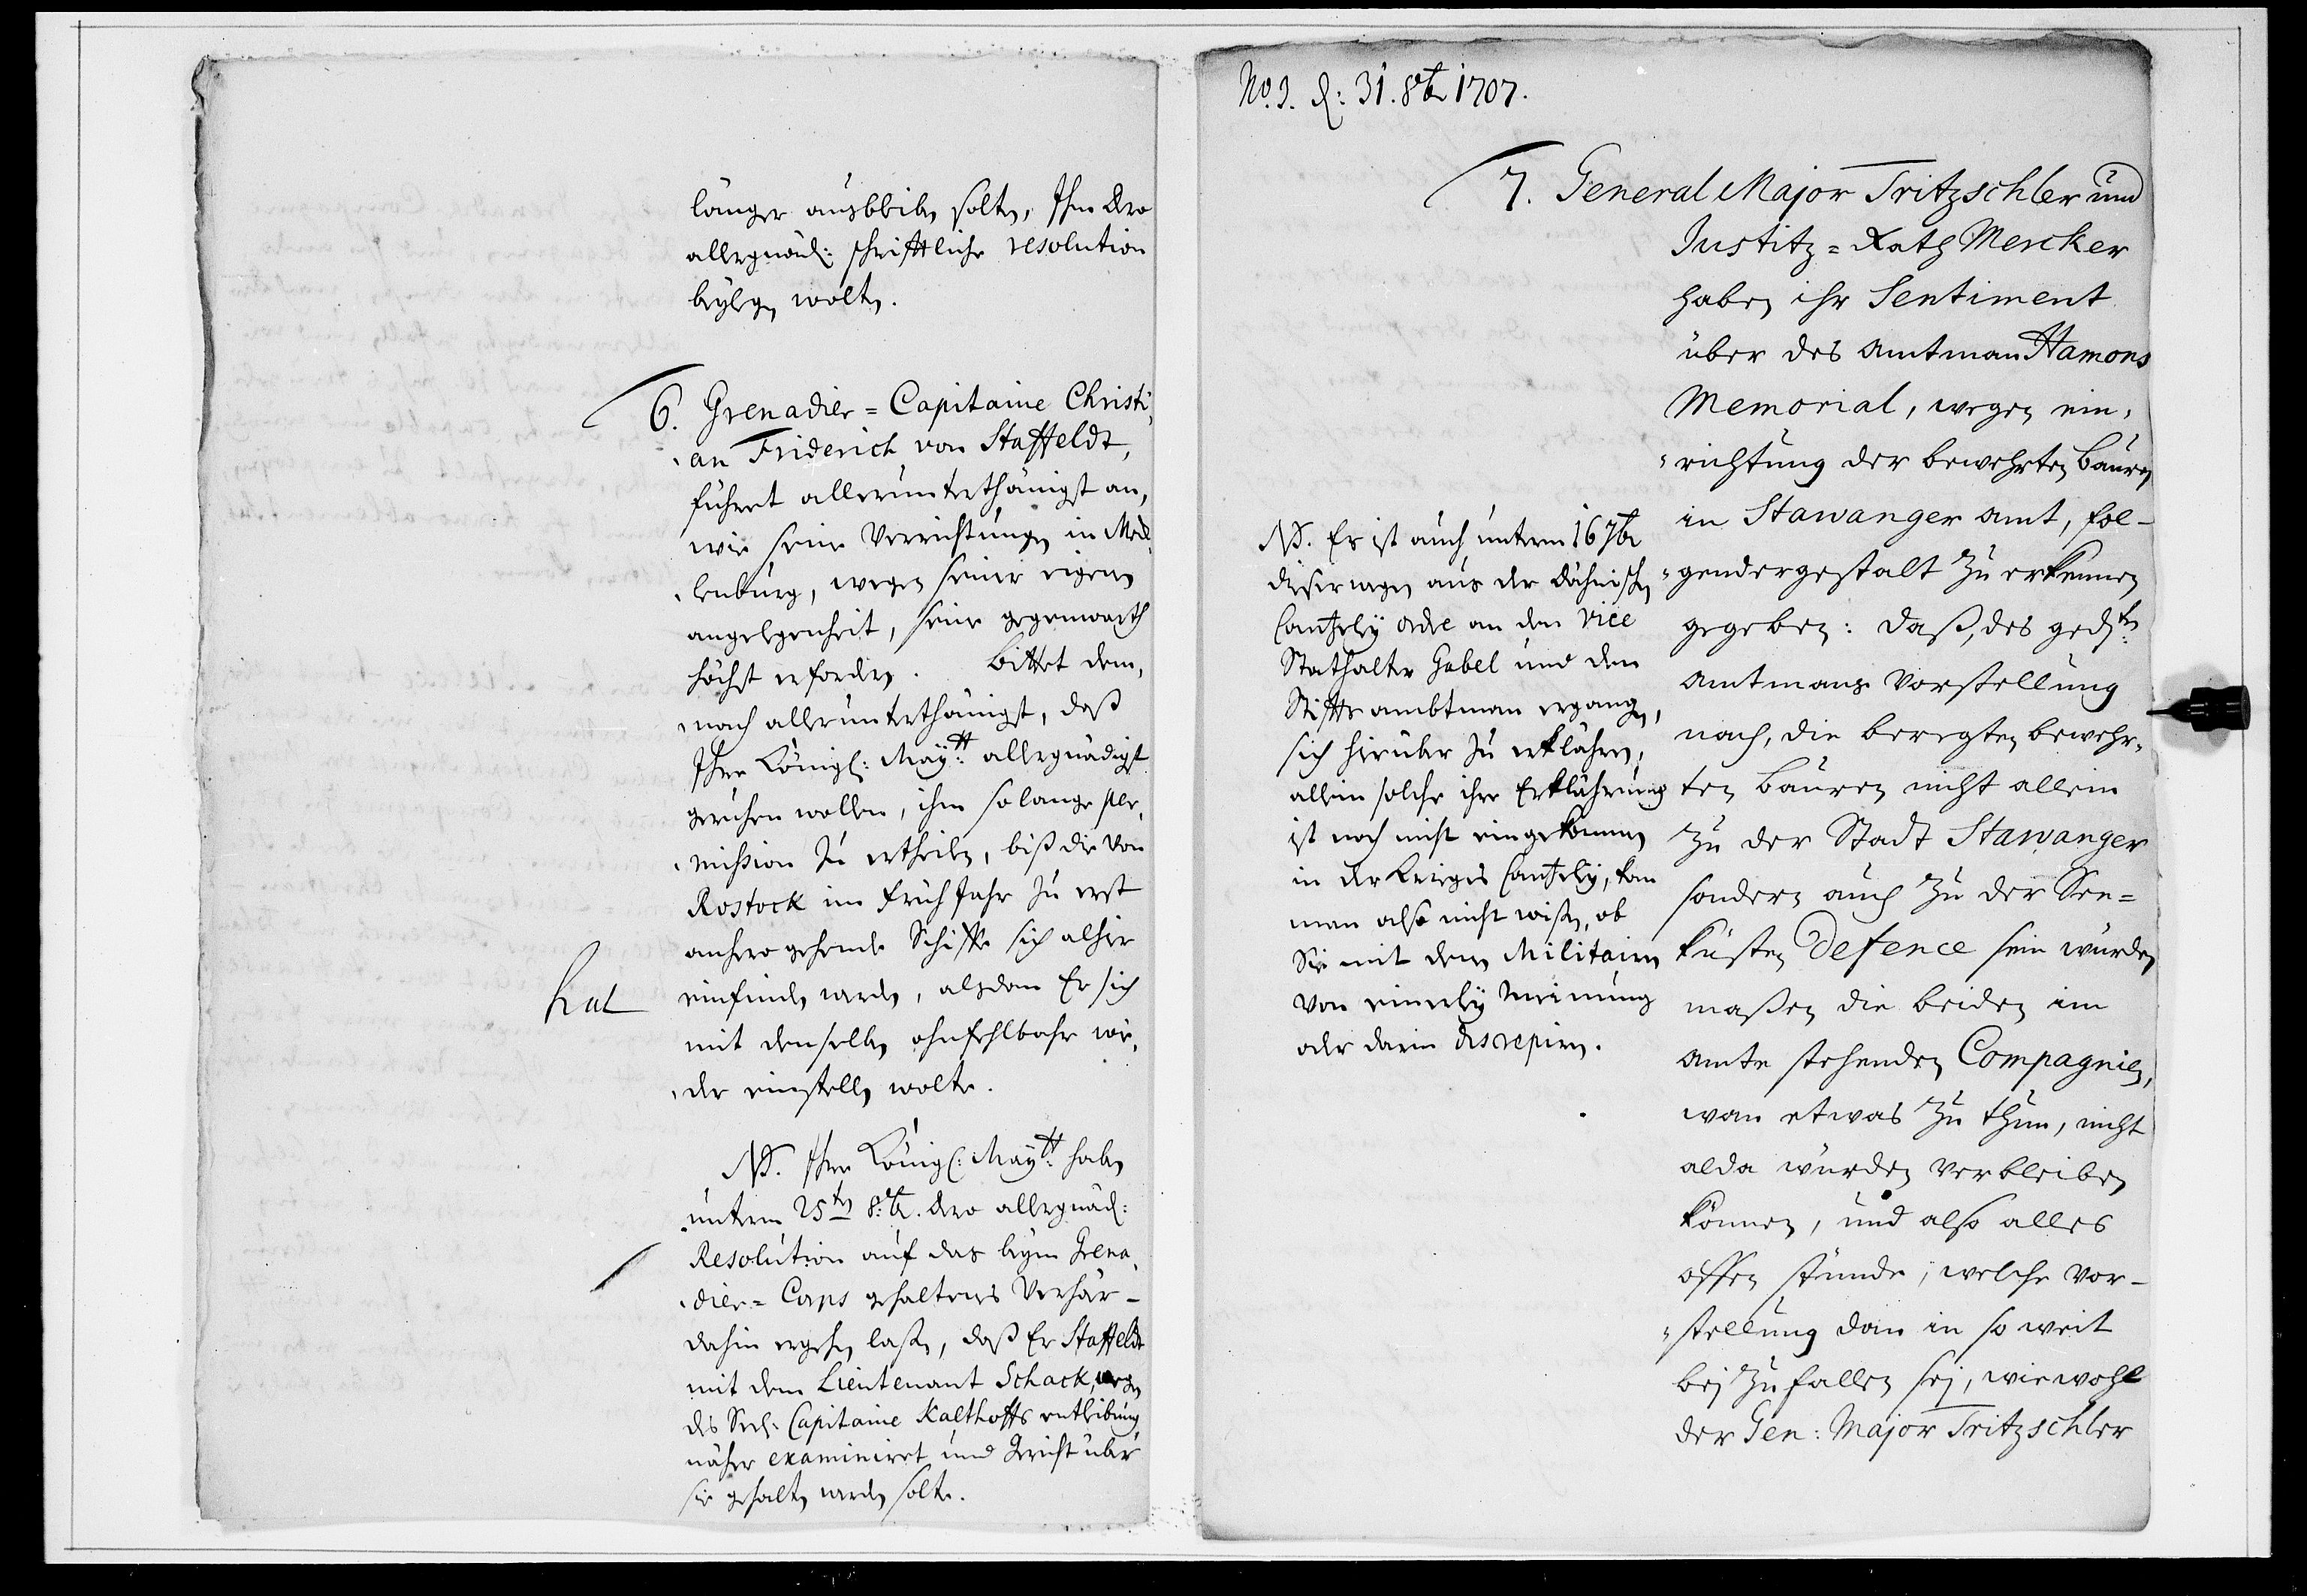 länger ausbleiben solten, Ihm dero
allergnäd: schrifftliche resolution
beylegen wolten.
6. Grenadier=Capitaine Christi,
,an Friderich von Staffeldt,
führet allerunterthänigst an,
wie seine Verrichtungen in Meck,
,lenburg, wegen seiner eigenen
angelegenheit, seine gegenwarth
höchst erfordern. Bittet dem,
,nach allerunterthänigst, daß
Ihre Königl: Maÿtt: allergnädigst
geruhen wollen, ihm so lange per,
,mission zu ertheilen, biß die von
Rostock im früh Jahr zu erst
anhero gehende Schiffe sich alhier
hat
einfinden werden, alsdan Er sich
mit denselben ohnfehlbahr wie,
,der einstellen wolte.
NB. Ihre Königl: Maÿtt: haben
unterm 25ten 8:br. dero allergnäd:
Resolution auf das beym Grena,
,dier=Corps gehaltenes Verhör
dahin ergehen laßen, daß Er Staffeldt
mit dem Lieutenant Schack, wegen
des Seel: Capitaine Kalthoffs entleibung
näher examiniret und Gericht über
sie gehalten werden solte.
No. 3. d: 31. 8br 1707.
7. General Major Tritzschler und
Justitz=Rath Mercker
haben ihr Sentiment
über des Amtman Hamons
Memorial, wegen ein,
"richtung der bewehrten Bauren
in Stawanger Amt, fol-
"gendergestalt zu erkennen
gegeben: daß, des gedten:
Amtmans Vorstellung
nach, die beregten bewehr,
ten Bauren nicht allein
zu der Stadt Stawanger
sondern auch zu der See=
küsten Defence sein würden
maßen die beiden im
Amte stehenden Compagnien,
wan etwas zu thun, nicht
alda würden verbleiben
können, und also alles
offen stünde; welche Vor-
"stellung dan in so weit
bej zu fallen sej, wie wohl
der Gen: Major Tritzschler
NB. Es ist auch unterm 16 7br
dieserwegen aus der Dähnischen
Cantzeleÿ ordre an den Vice
Stathalter Gabel und den
Stiffts ambtman ergangen,
sich hierüber zu erklähren,
allein solche ihre Erklährung
ist noch nicht eingekommen
in der Krieges Cantzeleÿ, kan
man also nicht wißen, ob
Sie mit denen Militairen
von einerleÿ Meinung
oder darin discrepiren.